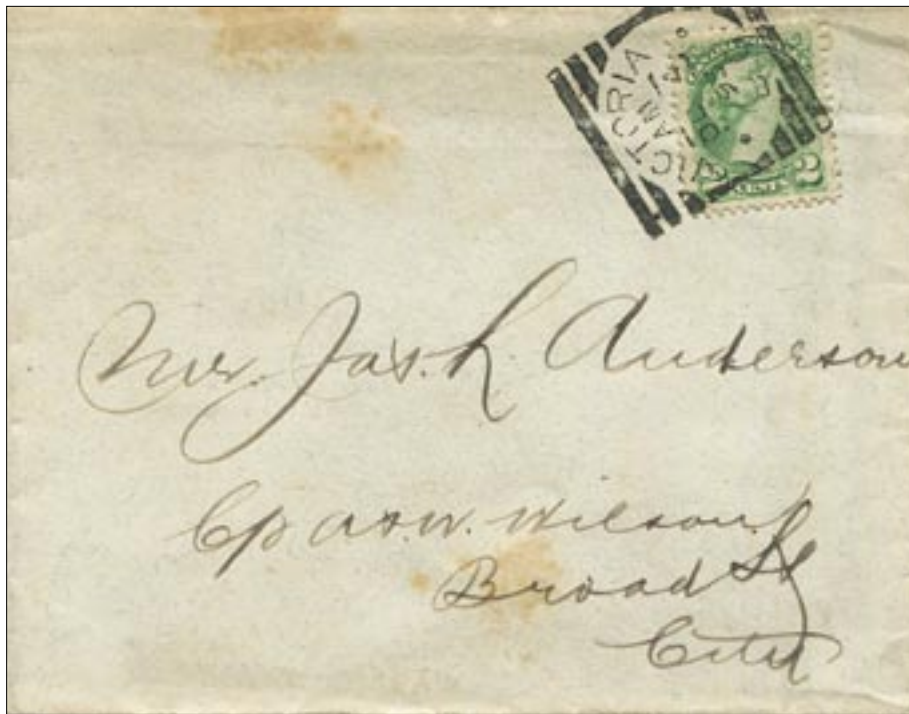 VICTORIA
JAN
2
Mr. Jas. L. Anderson
C/o A. & W. Wilson
Broad St
City